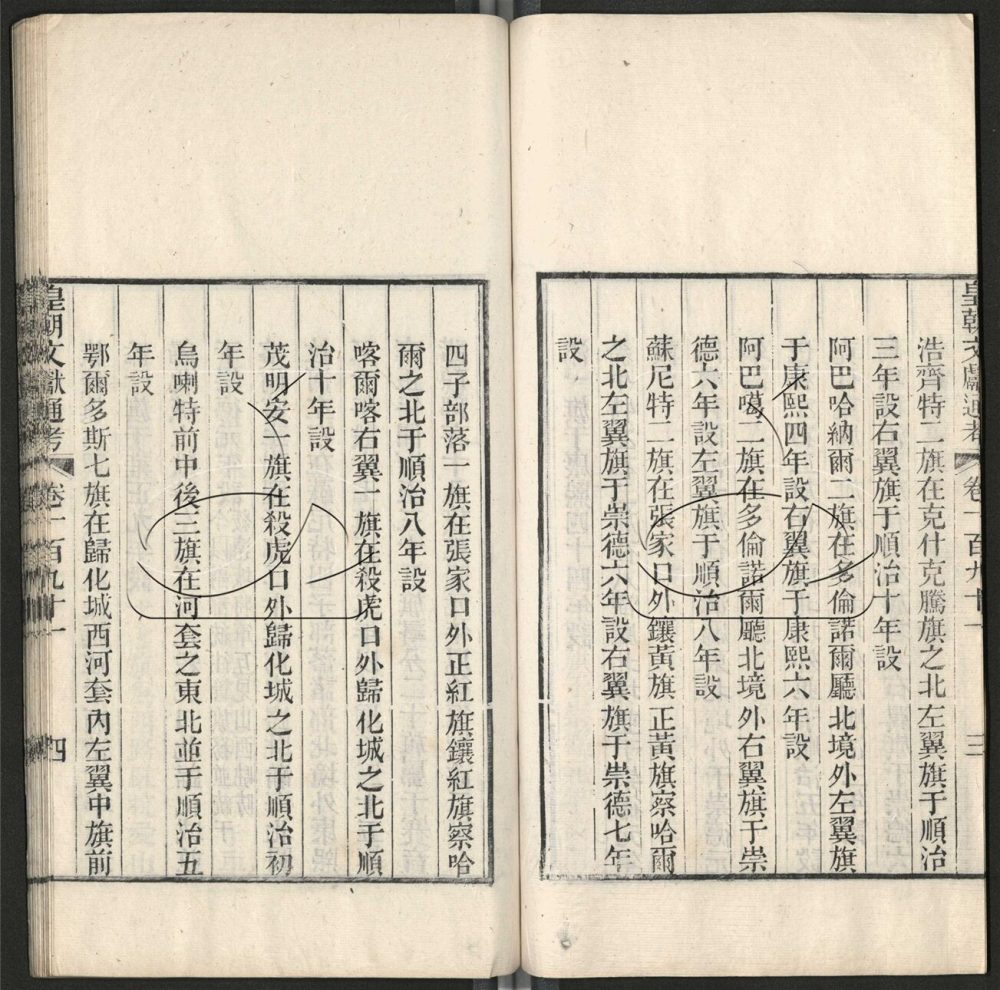 皇朝文獻通考 卷一百九十一 三
浩齊特二旗在克什克騰旗之北左翼旗于順治
三年設右翼旗于順治十年設
阿巴哈納爾二旗在多倫諾爾廳北境外左翼旗
于康熙四年設右翼旗于康熙六年設
阿巴噶二旗在多倫諾爾廳北境外右翼旗于崇
德六年設左翼旗于順治八年設
蘇尼特二旗在張家口外鑲黃旗正黃旗察哈爾
之北左翼旗于崇德六年設右翼旗于崇德七年
設
四子部落一旗在張家口外正紅旗鑲紅旗察哈
爾之北于順治八年設
喀爾喀右翼一旗在殺虎口外歸化城之北于順
治十年設
茂明安一旗在殺虎口外歸化城之北于順治初
年設
烏喇特前中後三旗在河套之東北並于順治五
年設
鄂爾多斯七旗在歸化城西河套內左翼中旗前
皇朝文獻通考 卷一百九十一 四